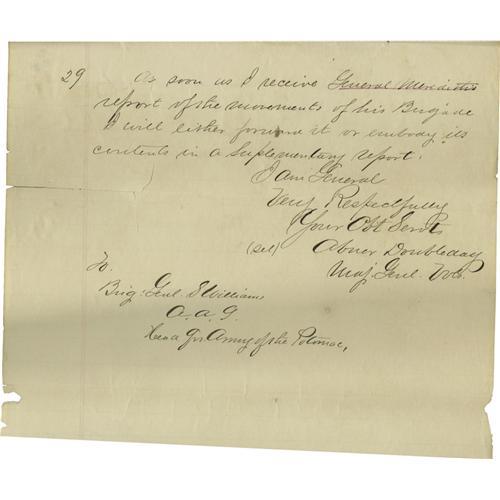 29 As soon as I receive General Meredith's
report of the movements of his Brigade
I will either forward it or embody its
contents in a Suplementary report.
I am General
Very Respectfully
Your Obt Servt
(sd) Abner Doubleday
Maj. Genl. Vols.
To.
Brig. Genl. S Williams
A. A. G.
Head Qrs Army of the Potomac,